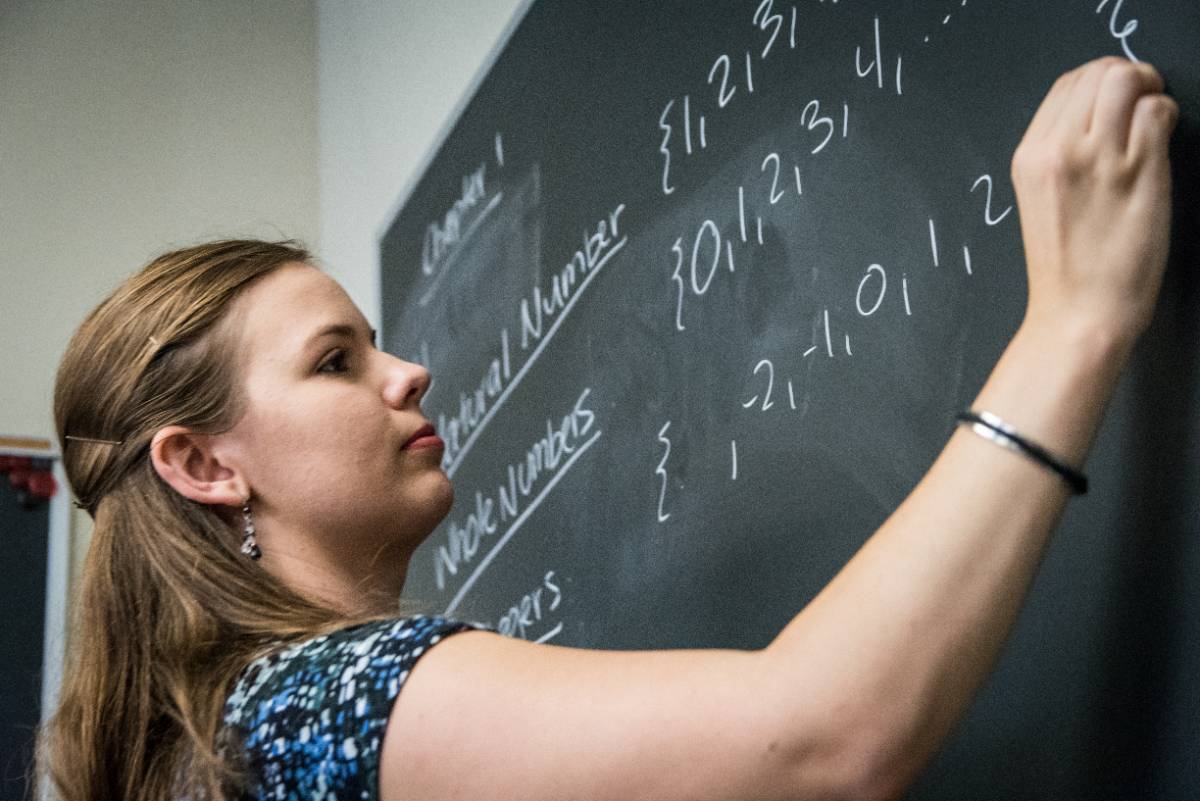 Chapter 1
Natural Number {1, 2, 3, ...
Whole Numbers {0, 1, 2, 3, 4, ...
egers { , -2, -1, 0, 1, 2